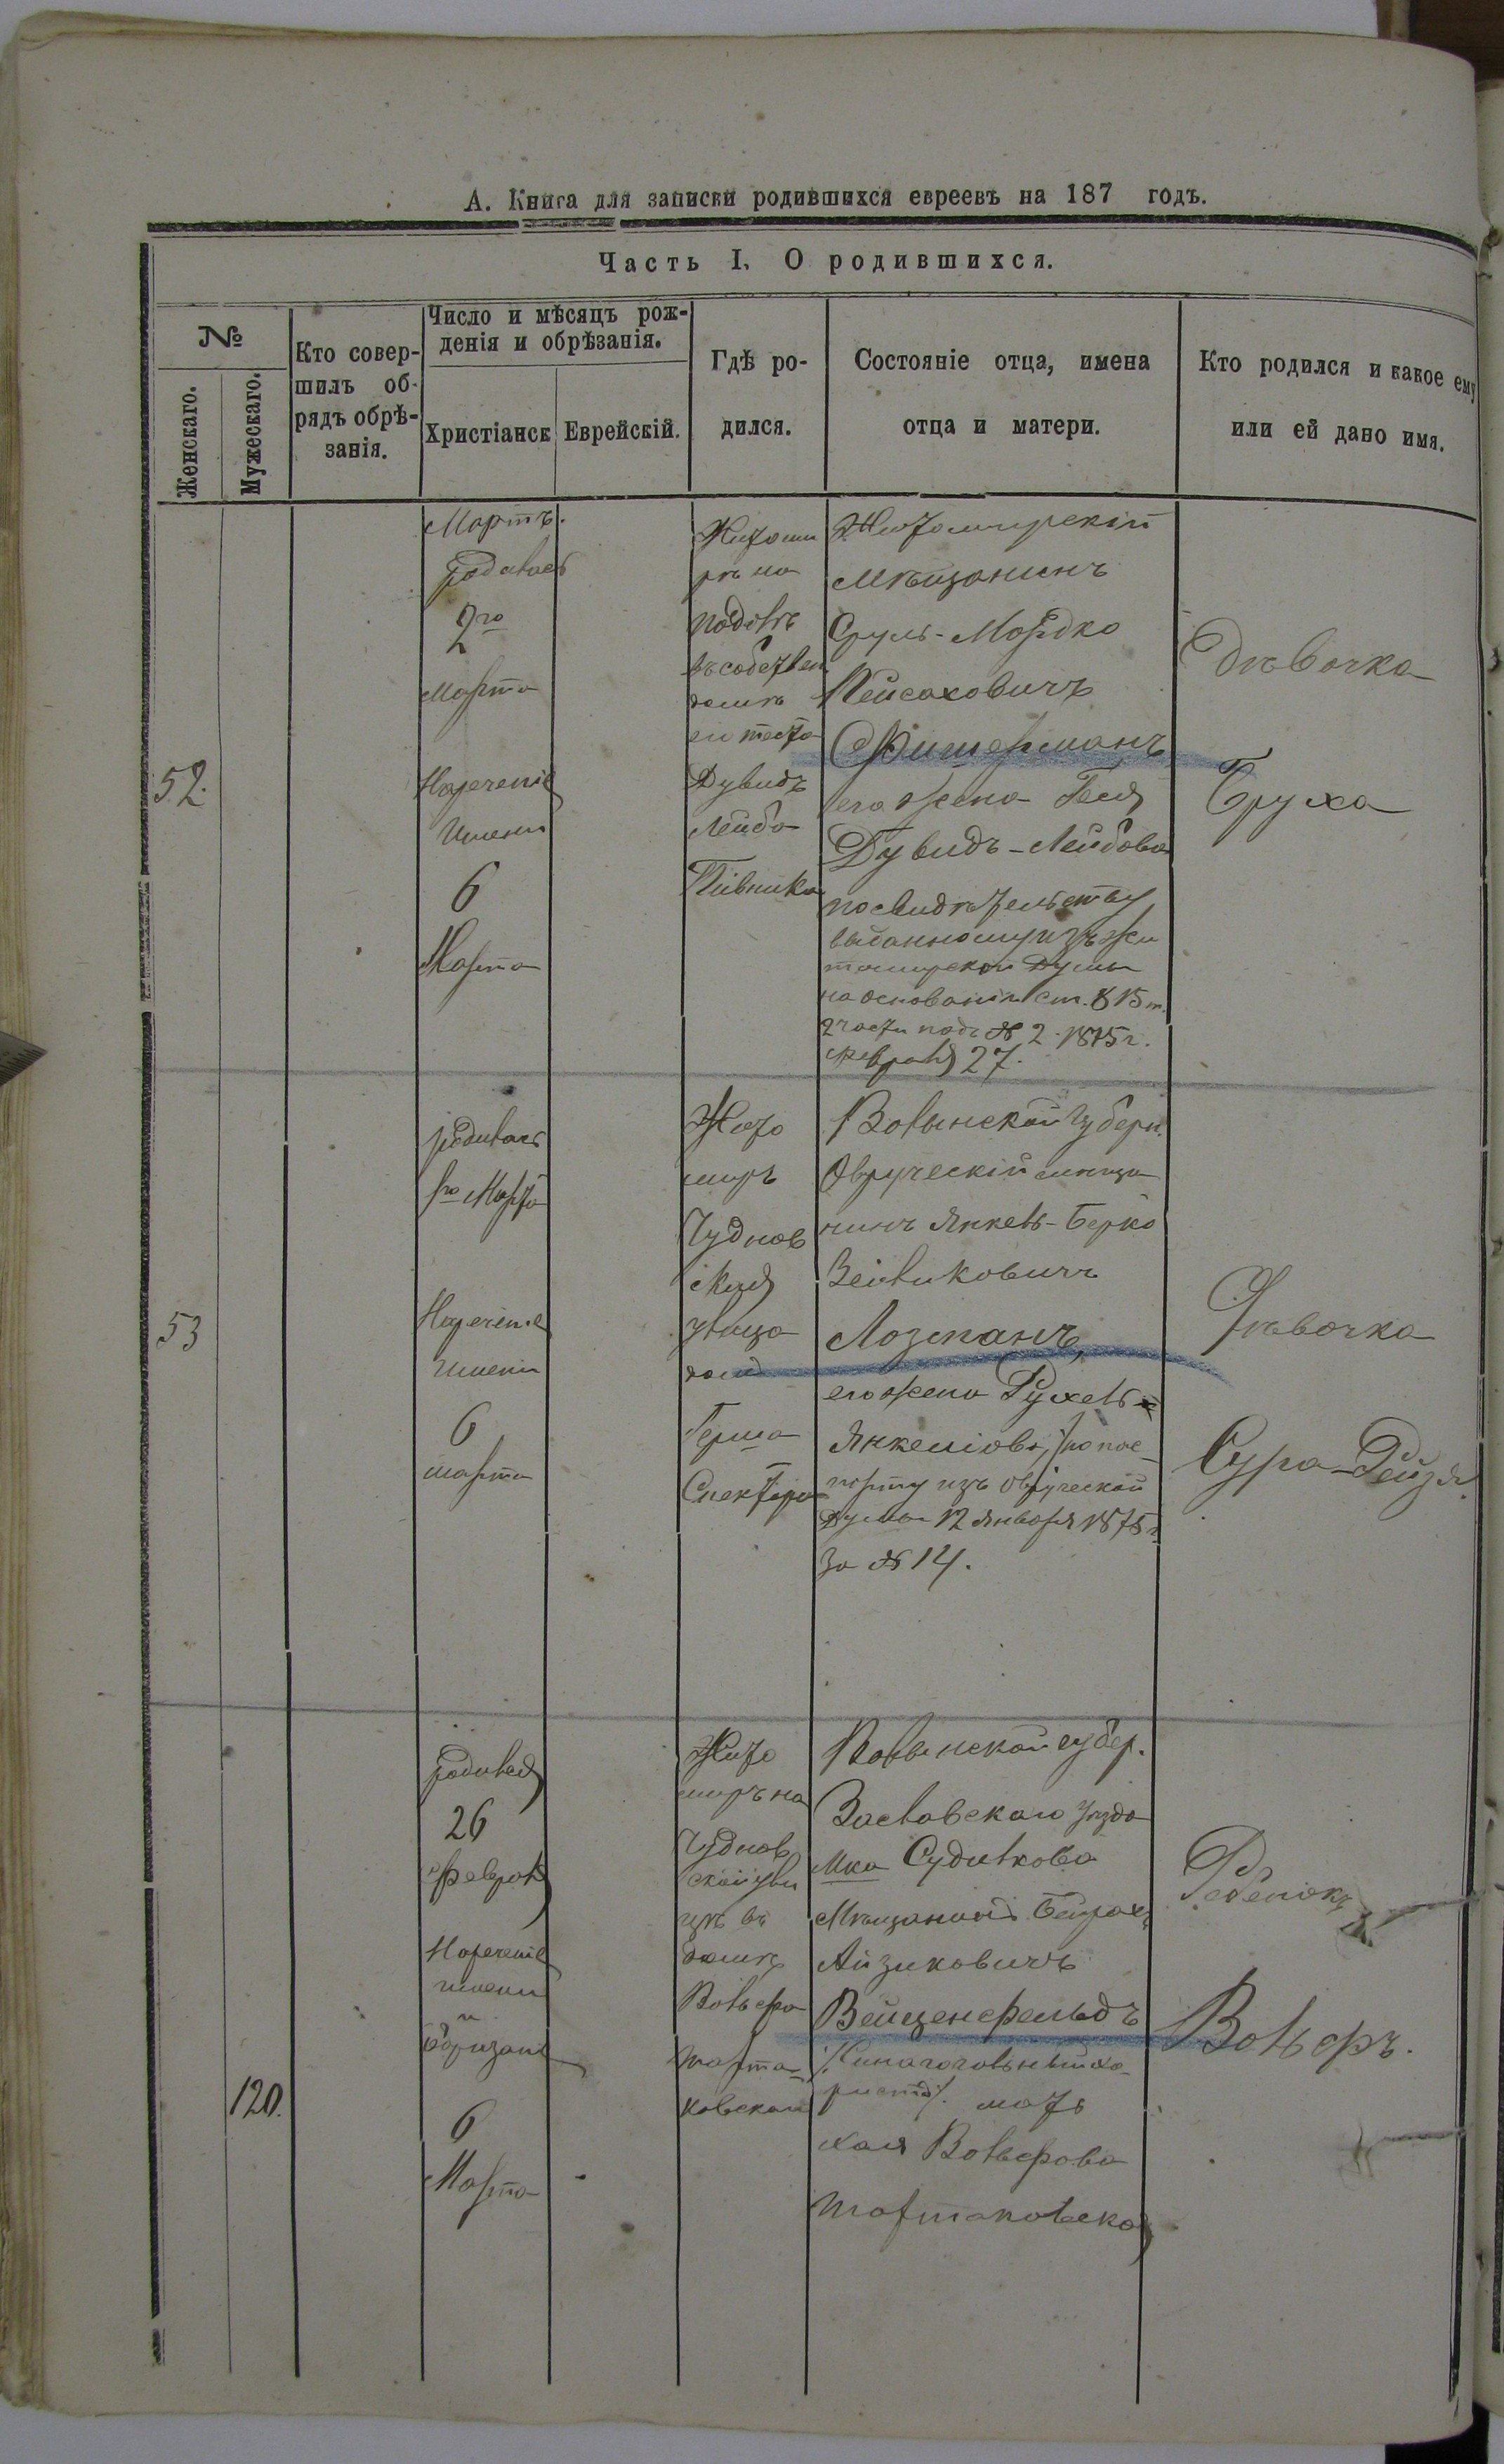 А. Книга для записки родившихся евреевъ на 187 годъ.
Часть I. О родившихся.
№
Женскаго.
Мужескаго.
Кто совер-
шилъ об-
рядъ обрѣ-
занія.
Число и мѣсяцъ рож-
денія и обрѣзанія.
Христіанск
Еврейскій.
Гдѣ ро-
дился.
Состояніе отца, имена
отца и матери.
Кто родился и какое ему
или ей дано имя.
52.
Мартъ.
родилась
2го
Марта
Нареченіе
Имени
6
Марта
Житоми
рѣ на
подолѣ
въ собствен
домѣ
его тестя
Дувидъ
Лейба
Пивника
Житомирскій
мѣщанинъ
Сруль-Мордко
Пейсаховичъ
Фишерманъ
его жена Геня
Дувидъ-Лейбова
по свидѣтельству
выданному изъ Жи
томирской Думы
на основаніи ст. 8 15 т.
2 части подъ № 2. 1875 г.
февраля 27.
Дѣвочка
Бруха
53
родилась
1го Марта
Нареченіе
Имени
6
марта
Жито
миръ
Чуднов
ская
улица
домъ
Герша
Спектора
Волынской Губерн.
Овручскій мѣща
нинъ Янкель-Берко
Зейликовичъ
Лозманъ,
его жена Рухель
Янкеліова, по пас-
порту изъ Овручской
Думы 12 января 1875 г.
за № 14.
Дѣвочка
Сура-Рейзя.
120.
родился
26
февраля
Нареченіе
имени
и
обризаніе
6
Марта
Жито
миръ на
Чуднов
ской ули
цѣ въ
домѣ
Вольфа
Марта-
ковской
Волынской губер.
Заславскаго уѣзда
мка Судилкова
Мѣщанинъ
Айзиковичъ
Вейценфельдъ
мать
Хая Вольфова
Мартаковская
Ребенокъ
Вольфъ.